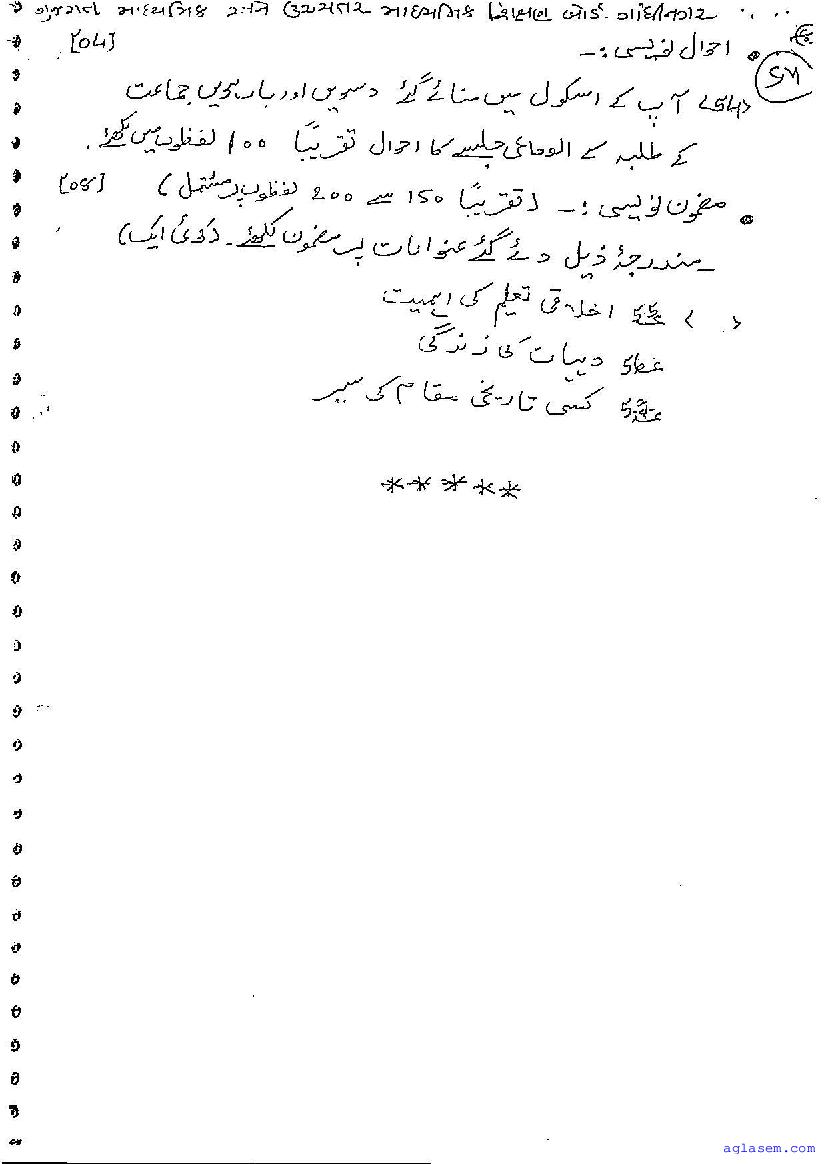 ગુજરાત માધ્યમિક અને ઉચ્ચતર માધ્યમિક શિક્ષણ બોર્ડ ગાંધીનગર
• احوال نویسی :- [04]
<54> آپ کے اسکول میں منائے گئے دسویں اور بارہویں جماعت
کے طلبہ کے الوداعی جلسے کا احوال تقریباً 100 لفظوں میں لکھئے.
• مضمون نویسی :- (تقریباً 150 سے 200 لفظوں پر مشتمل) [08]
مندرجۂ ذیل دئے گئے عنوانات پر مضمون لکھئے۔ (کوئی ایک)
اخلاقی تعلیم کی اہمیت
دیہات کی زندگی
کسی تاریخی مقام کی سیر
*****
aglasem.com